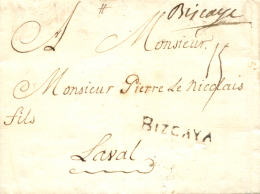 Biscaye
A Monsieur
15
Monsieur Pierre Le Nicolais
fils
BIZCAYA
Laval